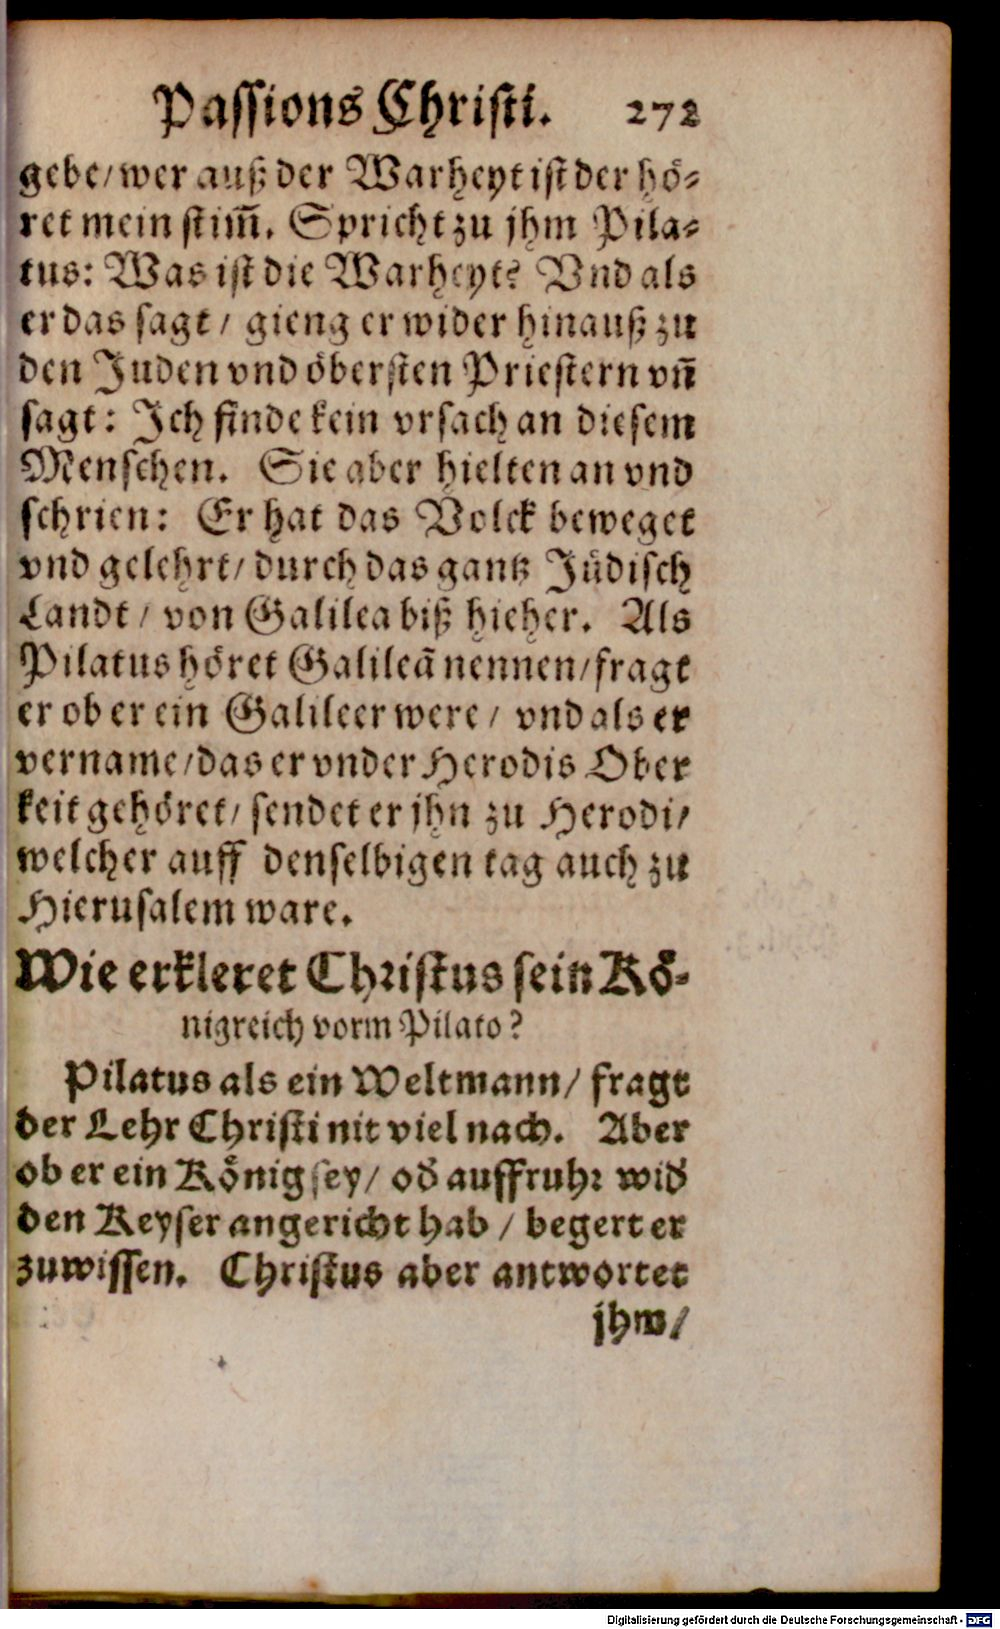 Passions Christi. 272
gebe/ wer auß der Warheyt ist der hö-
ret mein stim̃. Spricht zu jhm Pila-
tus: Was ist die Warheyt? Vnd als
er das sagt/ gieng er wider hinauß zu
den Juden vnd öbersten Priestern vñ
sagt: Ich finde kein vrsach an diesem
Menschen. Sie aber hielten an vnd
schrien: Er hat das Volck beweget
vnd gelehrt/ durch das gantz Jüdisch
Landt/ von Galilea biß hieher. Als
Pilatus höret Galileã nennen/ fragt
er ob er ein Galileer were/ vnd als er
vername/ das er vnder Herodis Ober
keit gehöret/ sendet er jhn zu Herodi/
welcher auff denselbigen tag auch zu
Hierusalem ware.
Wie erkleret Christus sein Kö-
nigreich vorm Pilato?
Pilatus als ein Weltmann/ fragt
der Lehr Christi nit viel nach. Aber
ob er ein König sey/ od̃ auffruhr wid̃
den Keyser angericht hab/ begert er
zuwissen. Christus aber antwortet
jhm/
Digitalisierung gefördert durch die Deutsche Forschungsgemeinschaft - DFG